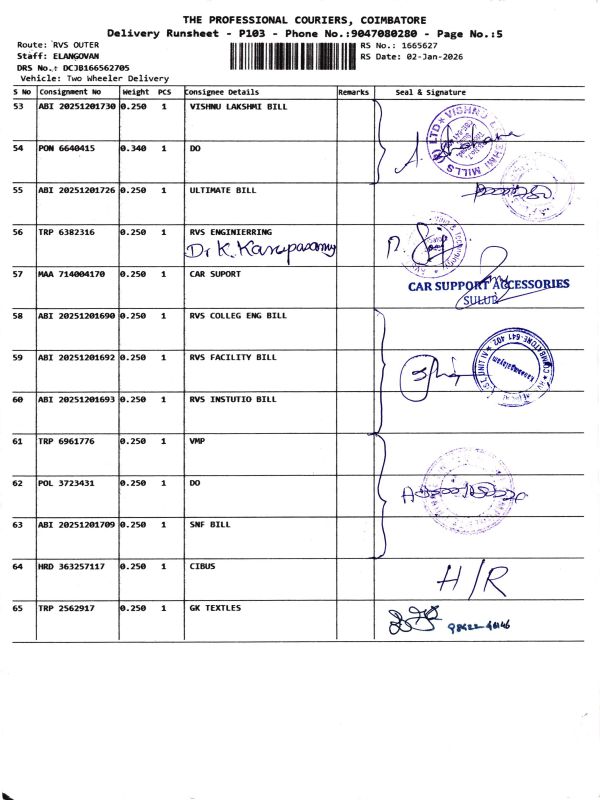 THE PROFESSIONAL COURIERS, COIMBATORE
Delivery Runsheet - P103 - Phone No.:9047080280 - Page No.:5
Route: RVS OUTER RS No.: 1665627
Staff: ELANGOVAN RS Date: 02-Jan-2026
DRS No.: DCJB166562705
Vehicle: Two Wheeler Delivery
S No Consignment No Weight PCS Consignee Details Remarks Seal & Signature
53 ABI 20251201730 0.250 1 VISHNU LAKSHMI BILL
54 PON 6640415 0.340 1 DO
55 ABI 20251201726 0.250 1 ULTIMATE BILL
56 TRP 6382316 0.250 1 RVS ENGINIERRING
Dr K. Karupasamy
57 MAA 714004170 0.250 1 CAR SUPORT
CAR SUPPORT ACCESSORIES
SULUR
58 ABI 20251201690 0.250 1 RVS COLLEG ENG BILL
59 ABI 20251201692 0.250 1 RVS FACILITY BILL
COIMBATORE-641 402
Kannampalayam
60 ABI 20251201693 0.250 1 RVS INSTUTIO BILL
61 TRP 6961776 0.250 1 VMP
62 POL 3723431 0.250 1 DO
63 ABI 20251201709 0.250 1 SNF BILL
64 HRD 363257117 0.250 1 CIBUS H/R
65 TRP 2562917 0.250 1 GK TEXTLES